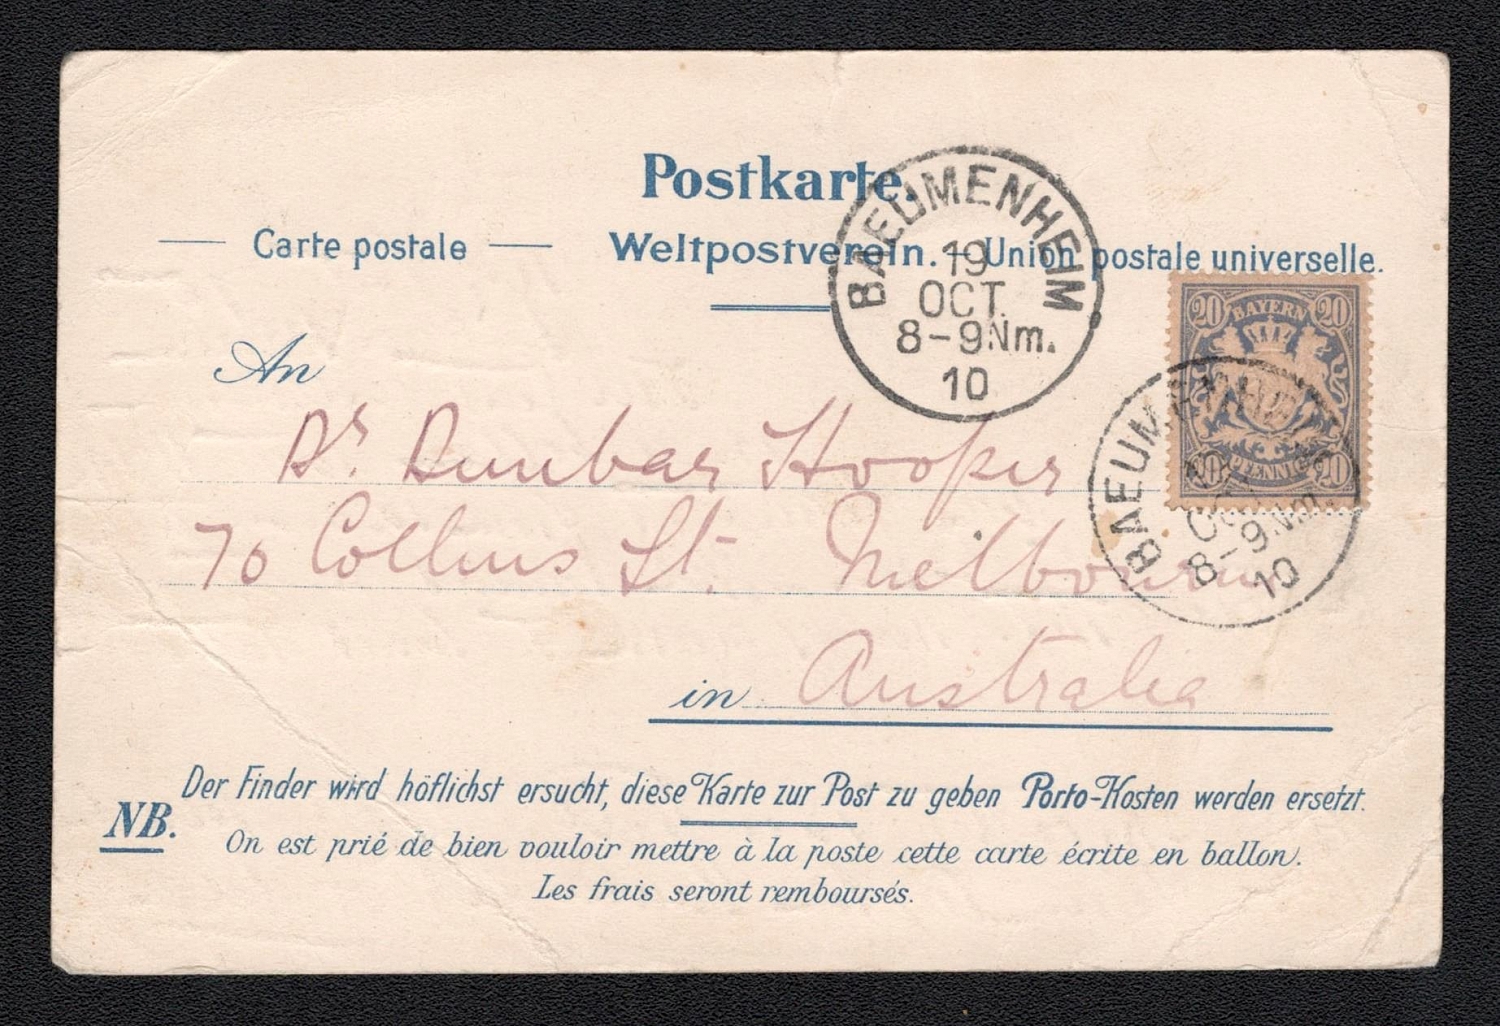 Postkarte.
Carte postale Weltpostverein. – Union postale universelle.
BAEUMENHEIM
19
OCT.
8-9Nm.
10
20 BAYERN 20
20 PFENNIG 20
BAEUMENHEIM
19
OCT.
8-9Nm.
10
An
Dr. Dunbar Hooper
70 Collins St. Melbourne
in Australia
NB. Der Finder wird höflichst ersucht, diese Karte zur Post zu geben Porto-Kosten werden ersetzt.
On est prié de bien vouloir mettre à la poste cette carte écrite en ballon.
Les frais seront remboursés.